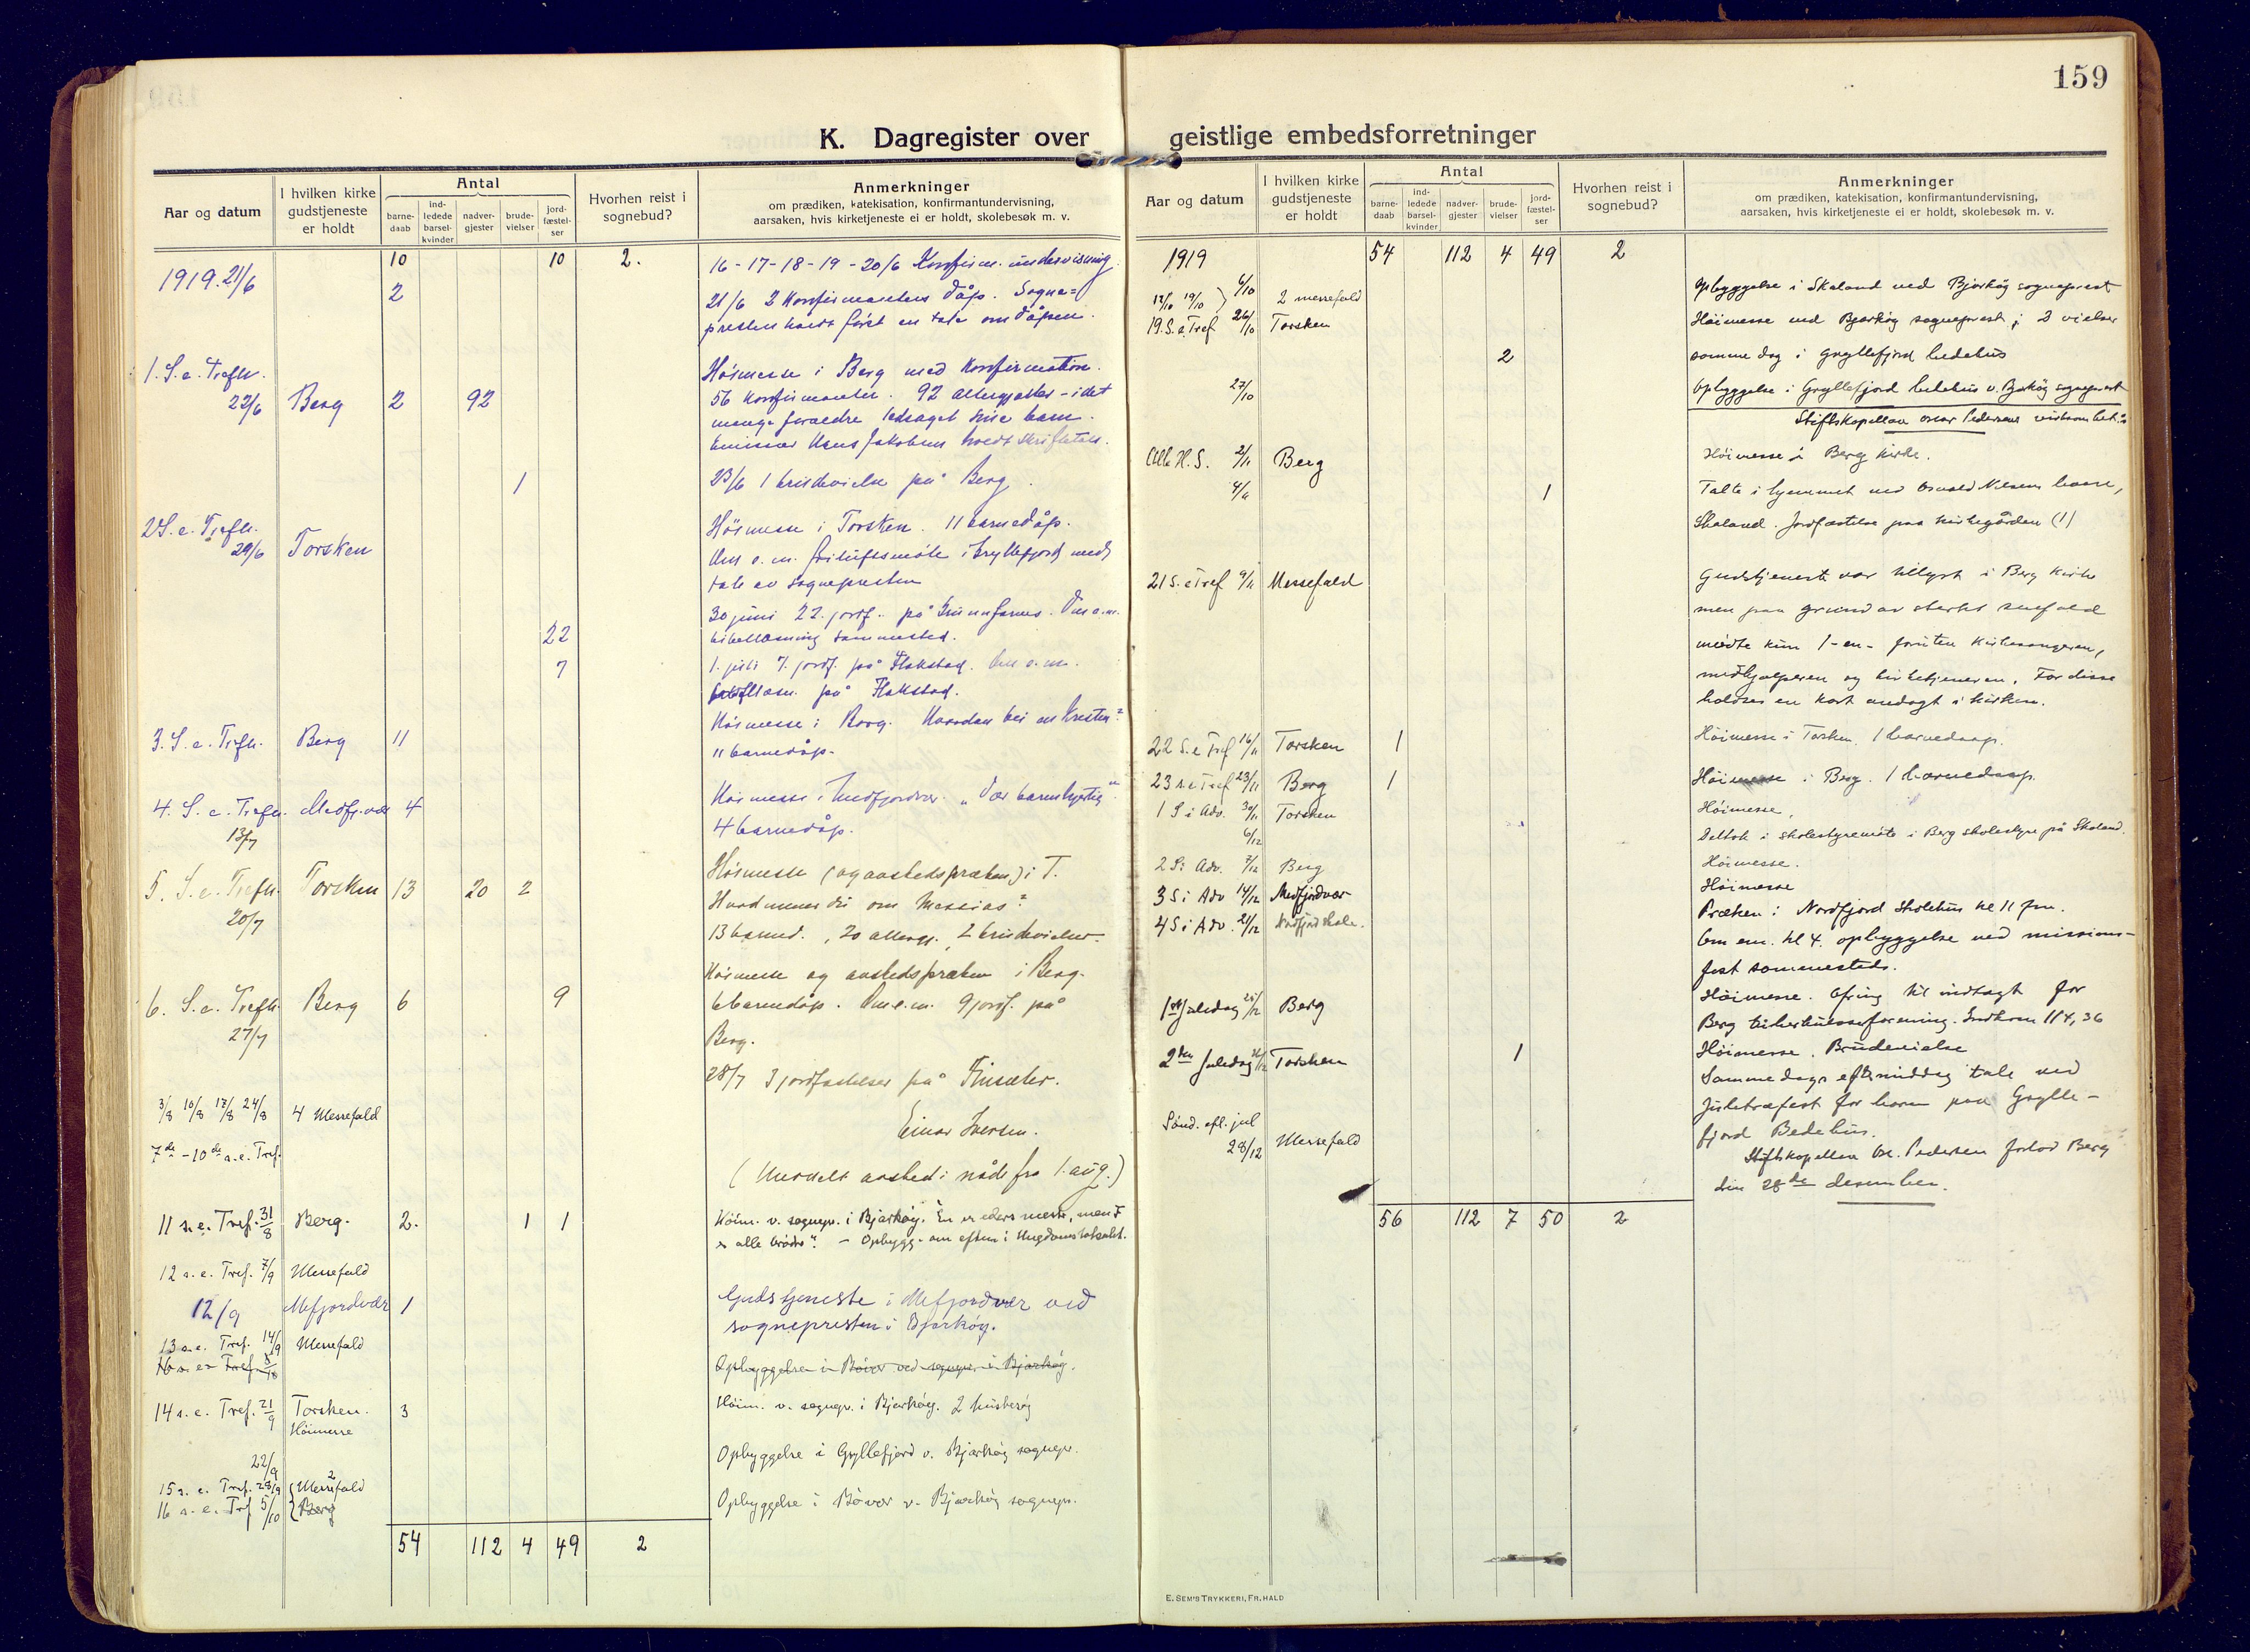 159
K. Dagregister over geistlige embedsforretninger
Aar og datum
I hvilken kirke gudstjeneste er holdt
Antal
barne-daab
ind-ledede barsel-kvinder
nadver-gjester
brude-vielser
jord-fæstel-ser
Hvorhen reist i sognebud?
Anmerkninger
om prædiken, katekisation, konfirmantundervisning,
aarsaken, hvis kirketjeneste ei er holdt, skolebesøk m. v.
10 10 2. 16-17-18-19-20/6 Konfirm. undervisning
1919. 21/6 2 21/6 2 Konfirmanters dåp. Sogne=
presten holdt først en tale om dåpen.
1. S. e. Trefh. Høimesse i Berg med Konfirmation.
22/6 Berg 2 92 56 Konfirmanter. 92 altergjester - idet
mange foreldre ledsaget sine barn.
Emissær Hans Jakobsen holdt skriftetale.
1 23/6 1 brudevielse på Berg.
2 S. e. Trefh. Høimesse i Torsken. 11 barnedåp.
29/6 Torsken Om e. m. friluftsmøte i Gryllefjord med
tale av sognepresten
30 juni 22. jordf. på Grunnfarnes. Om e. m.
22 bibellæsning sammested.
7 1. juli 7. jordf. på Flakstad. Om e. m.
på Flakstad.
Høimesse i Berg. Hvordan bli en kristen?
3. S. e. Trefh. Berg 11 11 barnedåp.
4. S. e. Trefh. Medfj.vær 4 Høimesse i Medfjordvær. „Vær barmhjertig“
13/7 4 barnedåp.
Høimesse (og avskedspræken) i T.
5. S. e. Trefh. Torsken 13 20 2 Hvad mener du om Messias?
20/7 13 barned., 20 alterg., 2 brudevielser.
Høimesse og avskedspræken i Berg.
6. S. e. Trefh. Berg 6 9 6 barnedåp. Om e. m. 9 jordf. på
27/7 Berg.
28/7 3 jordfæstelser på Finsæter.
3/8 10/8 17/8 24/8 4 Messefald
Einar Iversen.
7de - 10de s. e. Tref.
(Meddelt avsked i nåde fra 1. aug.)
11 s. e. Tref. 31/8 Berg. 2. 1 1 Höim. v. sognepr. i Bjarköy. „En er eders mester, men I
er alle brödre“. - Opbygg. om eftm i Ungdomslokalet.
12 s. e. Tref. 7/9 Messefald
12/9 Mefjordvær 1 Gudstjeneste i Mefjordvær ved
sognepresten i Bjarköy.
13 s. e. Tref. 14/9 Messefald
16 s. e. Tref. 5/10 Opbyggelse i Bövær ved sognepr. i Bjarköy.
14 s. e. Tref. 21/9 Torsken. 3 Höim. v. sognepr. i Bjarköy. 2 husbesög
Höimesse
22/9 Opbyggelse i Gryllefjord v. Bjarköy sognepr.
15 s. e. Tref. 28/9 2 Messefald
16 s. e. Tref 5/10 Berg Opbyggelse i Bövær v. Bjarköy sognepr.
54 112 4 49 2
Aar og datum
I hvilken kirke gudstjeneste er holdt
Antal
barne-daab
ind-ledede barsel-kvinder
nadver-gjester
brude-vielser
jord-fæstel-ser
Hvorhen reist i sognebud?
Anmerkninger
om prædiken, katekisation, konfirmantundervisning,
aarsaken, hvis kirketjeneste ei er holdt, skolebesøk m. v.
1919 54 112 4 49 2
6/10 Opbyggelse i Skaland ved Bjarköy sogneprest
12/10 19/10 2 messefald
19. S. e. Tref 26/10 Torsken Höimesse ved Bjarköy sogneprest; 2 vielser
2 samme dag i Gryllefjord bedehus
27/10 Opbyggelse i Gryllefjord bedehus v. Bjarköy sogneprest
Stiftskapellan Oscar Pedersens
Alle H. S. 2/11 Berg Höimesse i Berg kirke.
4/11 1 Talte i hjemmet ved Osvald Nilsens baare,
Skaland. Jordfæstelse paa kirkegården (1)
21 S. e Tref 9/11 Messefald Gudstjeneste var tillyst i Berg kirke
men paa grund av sterkt snefald
mödte kun 1 - en - foruten kirkesangeren,
medhjælperen og kirketjeneren. For disse
holdtes en kort andagt i kirken.
22 S. e Tref 16/11 Torsken 1 Höimesse i Torsken. 1 barnedaap.
23 s. e Tref 23/11 Berg 1 Höimesse i Berg. 1 barnedaap.
1 S i Adv. 30/11 Torsken Höimesse,
6/12 Deltok i skolestyremöte i Berg skolestyre på Skaland.
2 S i Adv. 7/12 Berg Höimesse.
3 S i Adv 14/12 Medfjordvær Höimesse
4 S i Adv. 21/12 Nordfjord skole. Præken i Nordfjord skolehus kl 11 fm.
Om em. kl 4. opbyggelse ved missions-
fest sammesteds.
1ste Juledag 25/12 Berg Höimesse. Ofring til indtægt for
Berg tuberkuloseforening. Indkom 114,36
2den Juledag 26/12 Torsken 1 Höimesse. Brudevielse
Samme dags eftermiddag tale ved
Juletræfest for barn paa Grylle-
fjord Bedehus.
Sönd. eft. jul
28/12 Messefald Stiftskapellan Osc. Pedersen forlod Berg
den 28de desember.
56 112 7 50 2
E. SEM'S TRYKKERI, FR.HALD